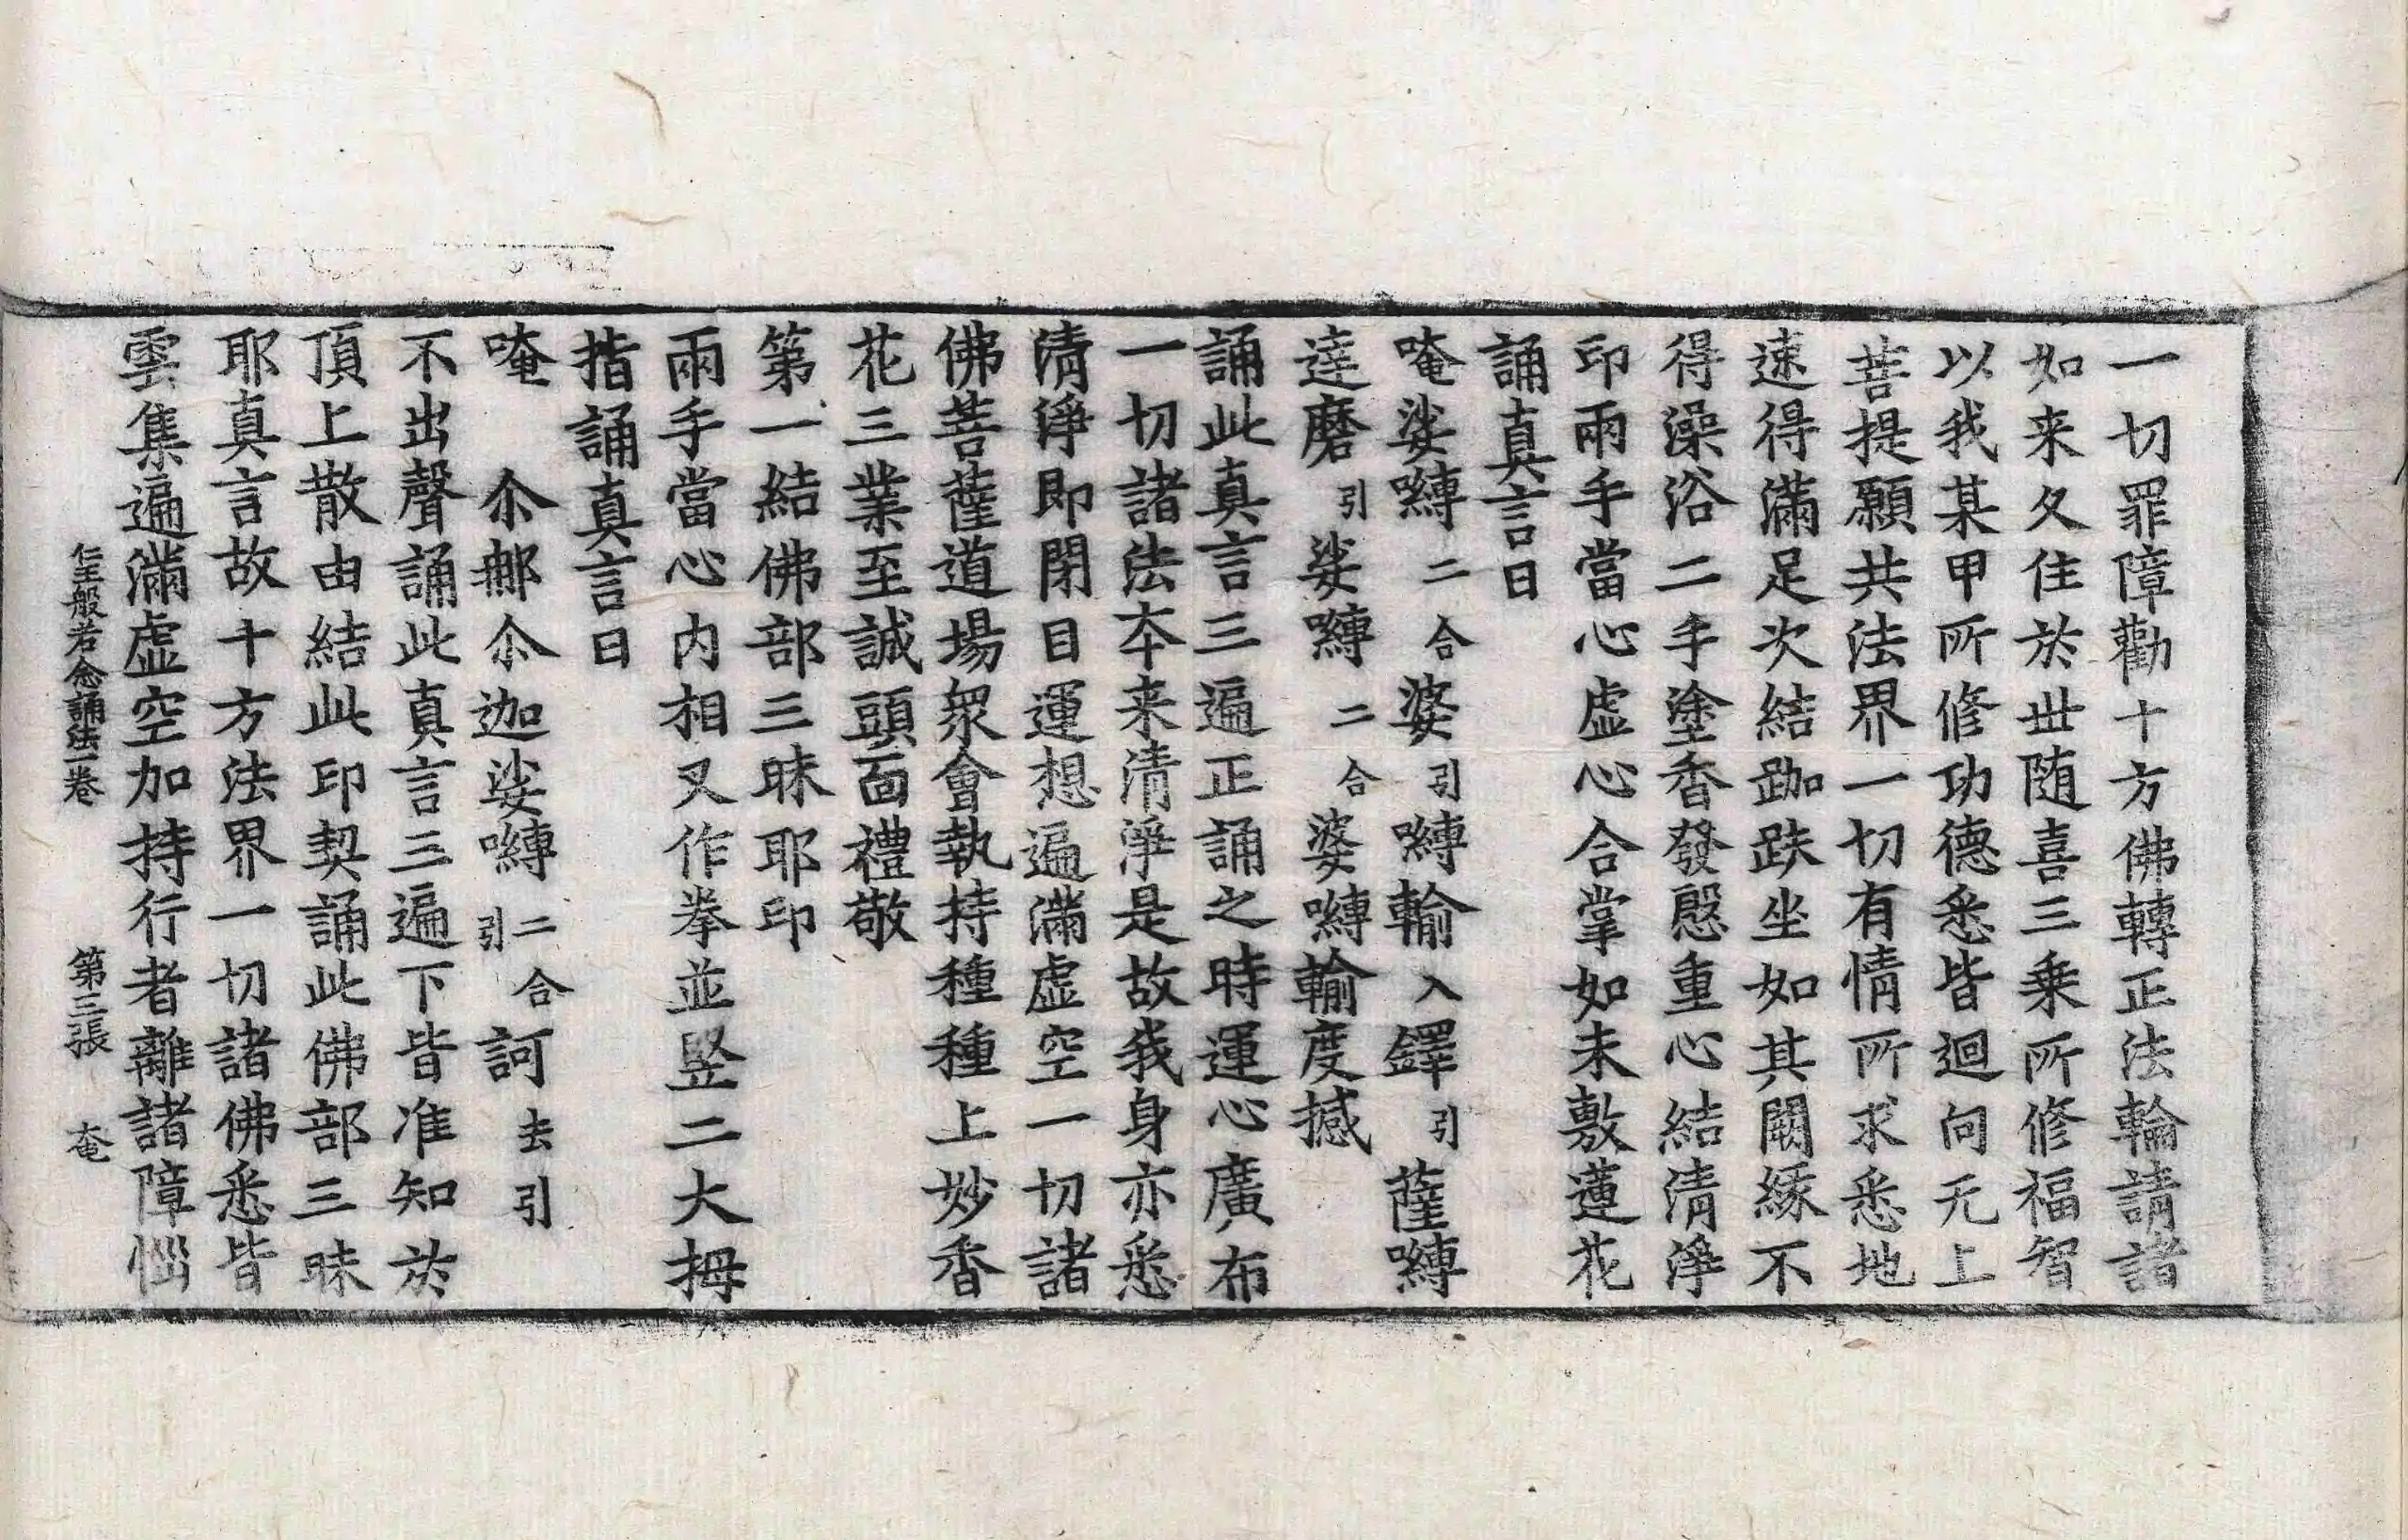 一切罪障勸十方佛轉正法輪請諸
如来久住於丗随喜三乗所修福智
以我某甲所修功德悉皆迴向无上
菩提願共法界一切有情所求悉地
速得滿足次結跏趺坐如其闕緣不
得澡浴二手塗香發慇重心結清淨
印兩手當心虛心合掌如未敷蓮花
誦真言曰
唵娑嚩二合婆引嚩輸入鐸引薩嚩
達磨引娑嚩二合婆嚩輸度憾
誦此真言三遍正誦之時運心廣布
一切諸法夲来清淨是故我身亦悉
清淨即閉目運想遍滿虛空一切諸
佛菩薩道場衆會執持種種上妙香
花三業至誠頭面禮敬
第一結佛部三昧耶印
兩手當心内相叉作拳並竪二大拇
指誦真言曰
唵 尒娜尒迦娑嚩二合引訶去引
不出聲誦此真言三遍下皆准知於
頂上散由結此印契誦此佛部三昧
耶真言故十方法界一切諸佛悉皆
雲集遍滿虛空加持行者離諸障惱
仁王般若念誦法一卷 第三張 奄